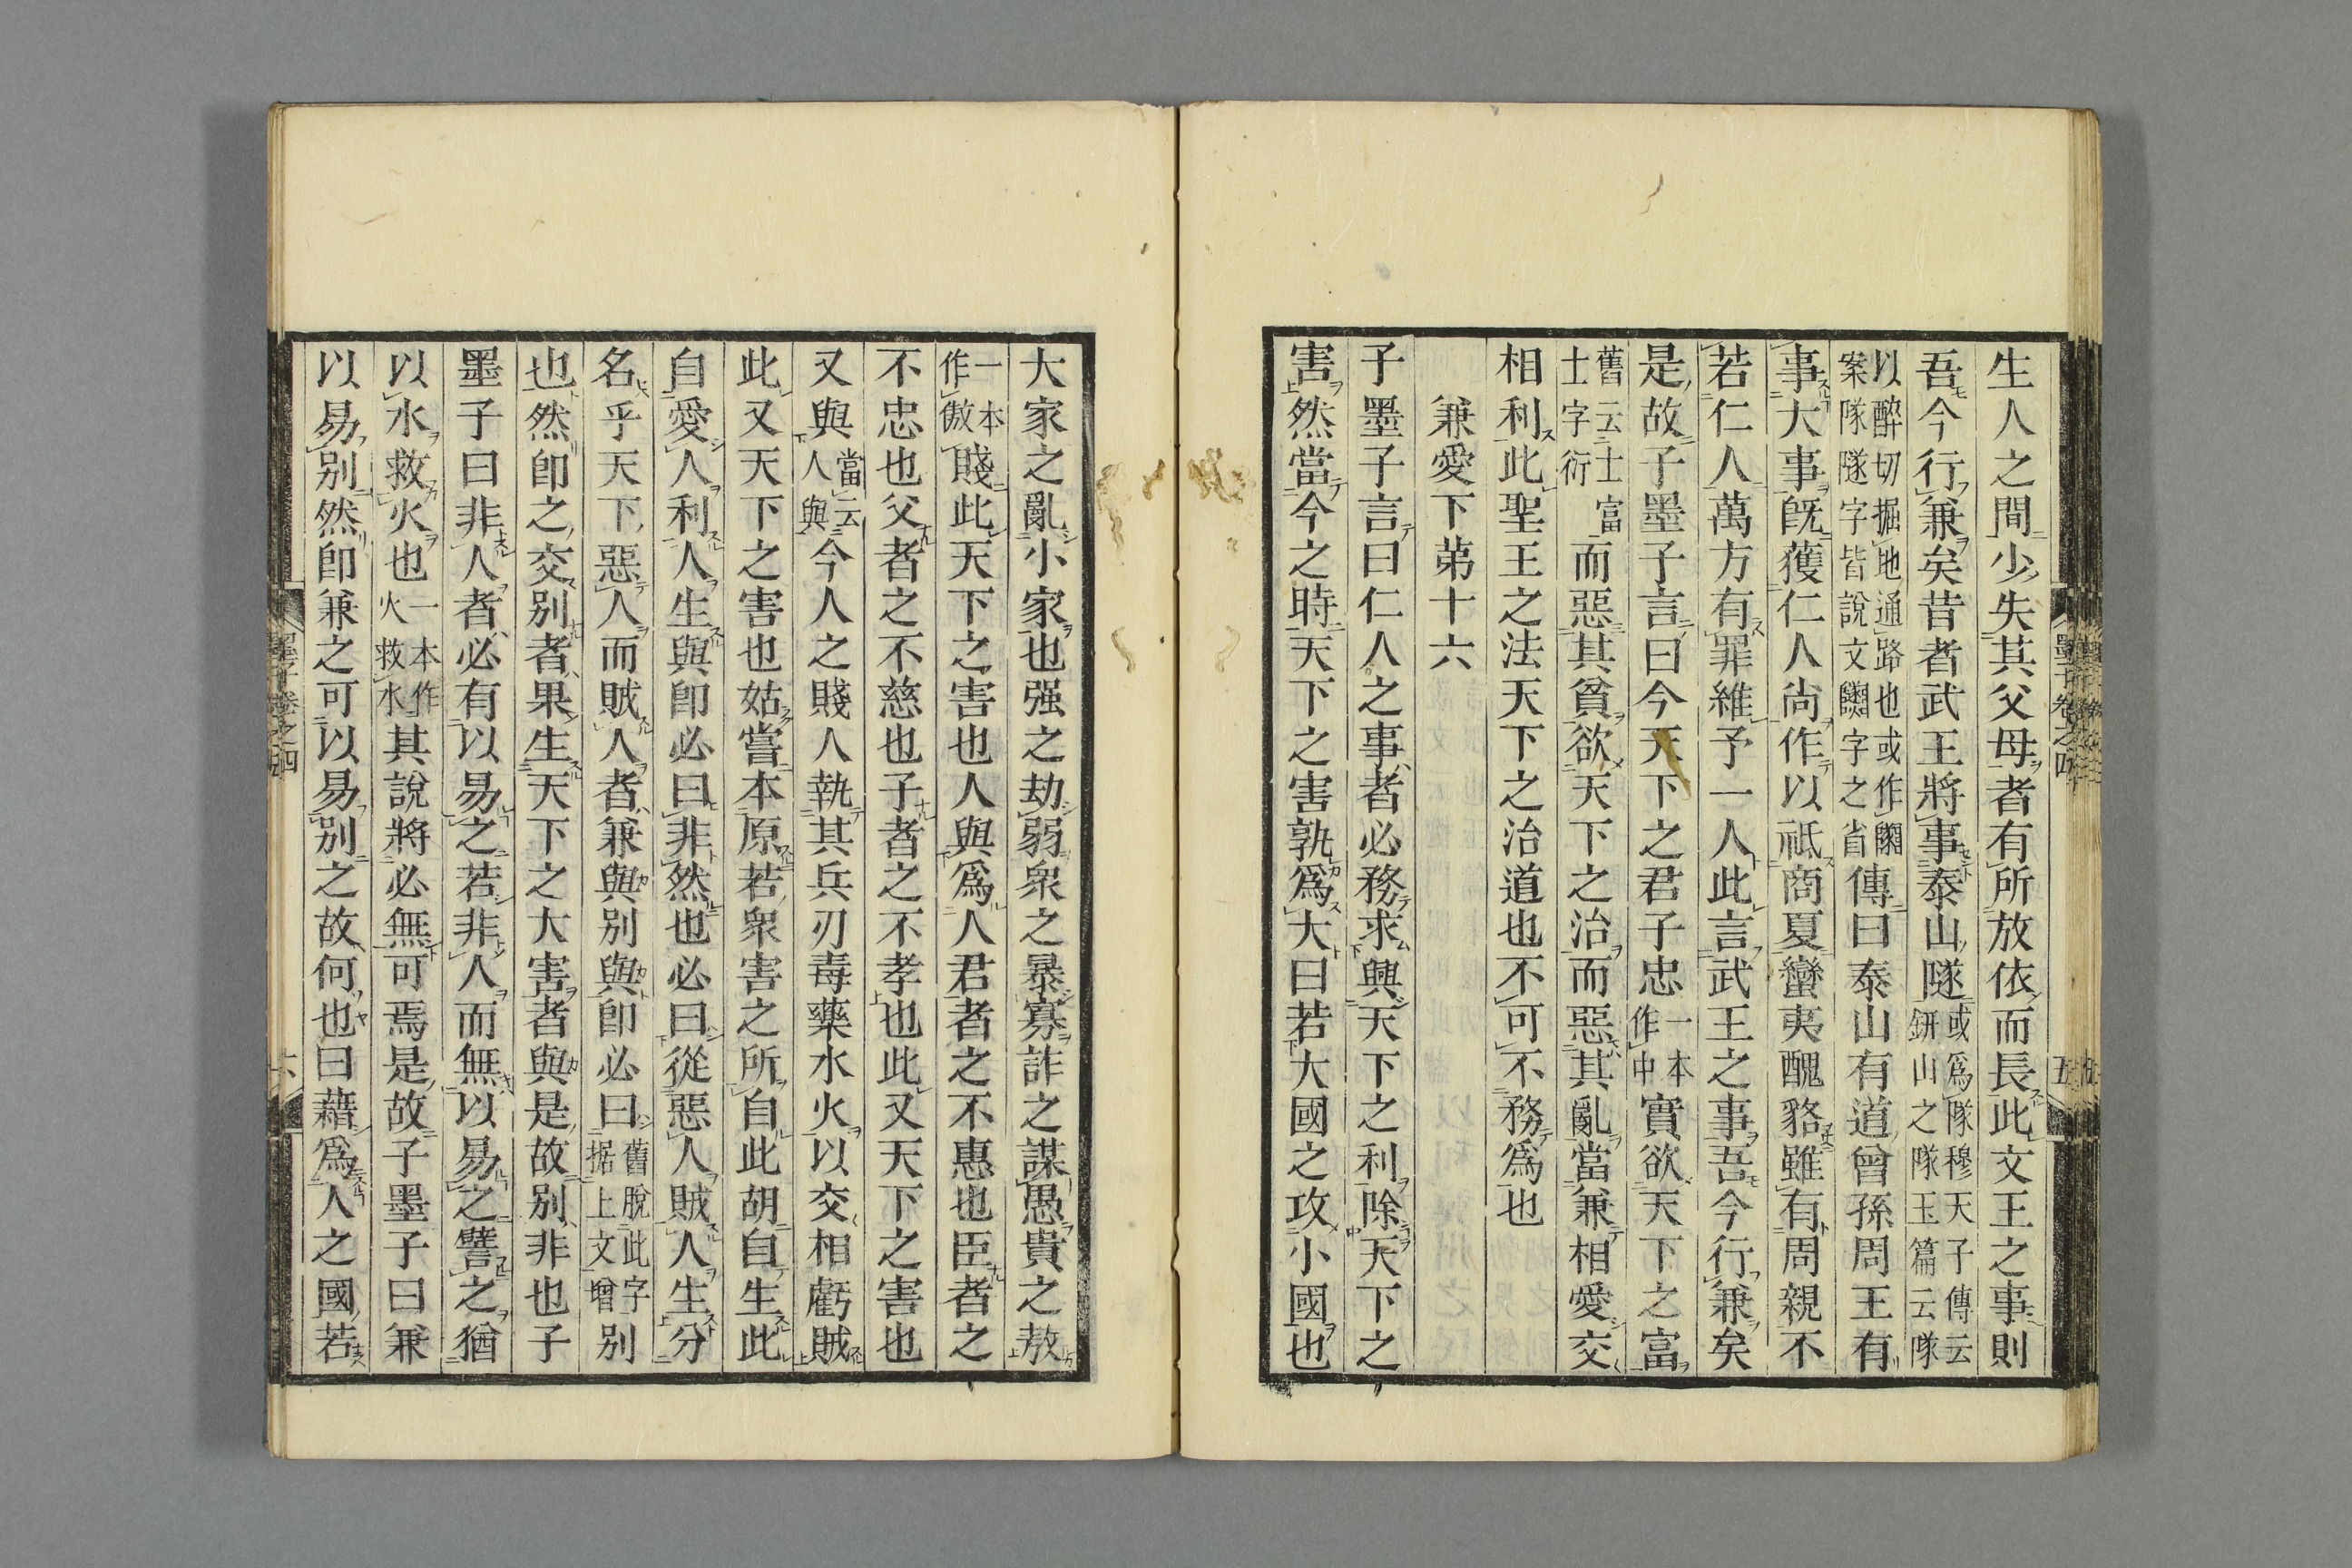 生人之間少失其父母者有所放依而長此文王之事則
吾今行兼矣昔者武王將事泰山隧或爲隊穆天子傳云鈃山之隊玉篇云隊
以醉切掘地通路也或作𨽵案隊隧字皆說文𨽵字之省傳曰泰山有道曾孫周王有
事大事旣獲仁人尚作以祗商夏蠻夷醜貉雖有周親不
若仁人萬方有罪維予一人此言武王之事吾今行兼矣
是故子墨子言曰今天下之君子忠一本作中實欲天下之富
舊云士富士字衍而惡其貧欲天下之治而惡其亂當兼相愛交
相利此聖王之法天下之治道也不可不務爲也
兼愛下第十六
子墨子言曰仁人之事者必務求興天下之利除天下之
害然當今之時天下之害孰爲大曰若大國之攻小國也
墨子卷之四
五
大家之亂小家也强之劫弱衆之暴寡詐之謀愚貴之敖
一本作傲賤此天下之害也人與爲人君者之不惠也臣者之
不忠也父者之不慈也子者之不孝也此又天下之害也
又與當云人與今人之賤人執其兵刃毒藥水火以交相虧賊
此又天下之害也姑嘗本原若衆害之所自此胡自生此
自愛人利人生與卽必曰非然也必曰從惡人賊人生分
名乎天下惡人而賊人者兼與别與卽必曰舊脫此字据上文增别
也然卽之交别者果生天下之大害者與是故别非也子
墨子曰非人者必有以易之若非人而無以易之譬之猶
以水救火也一本作火救水其說將必無可焉是故子墨子曰兼
以易别然卽兼之可以易别之故何也曰藉爲人之國若
墨子卷之四
六